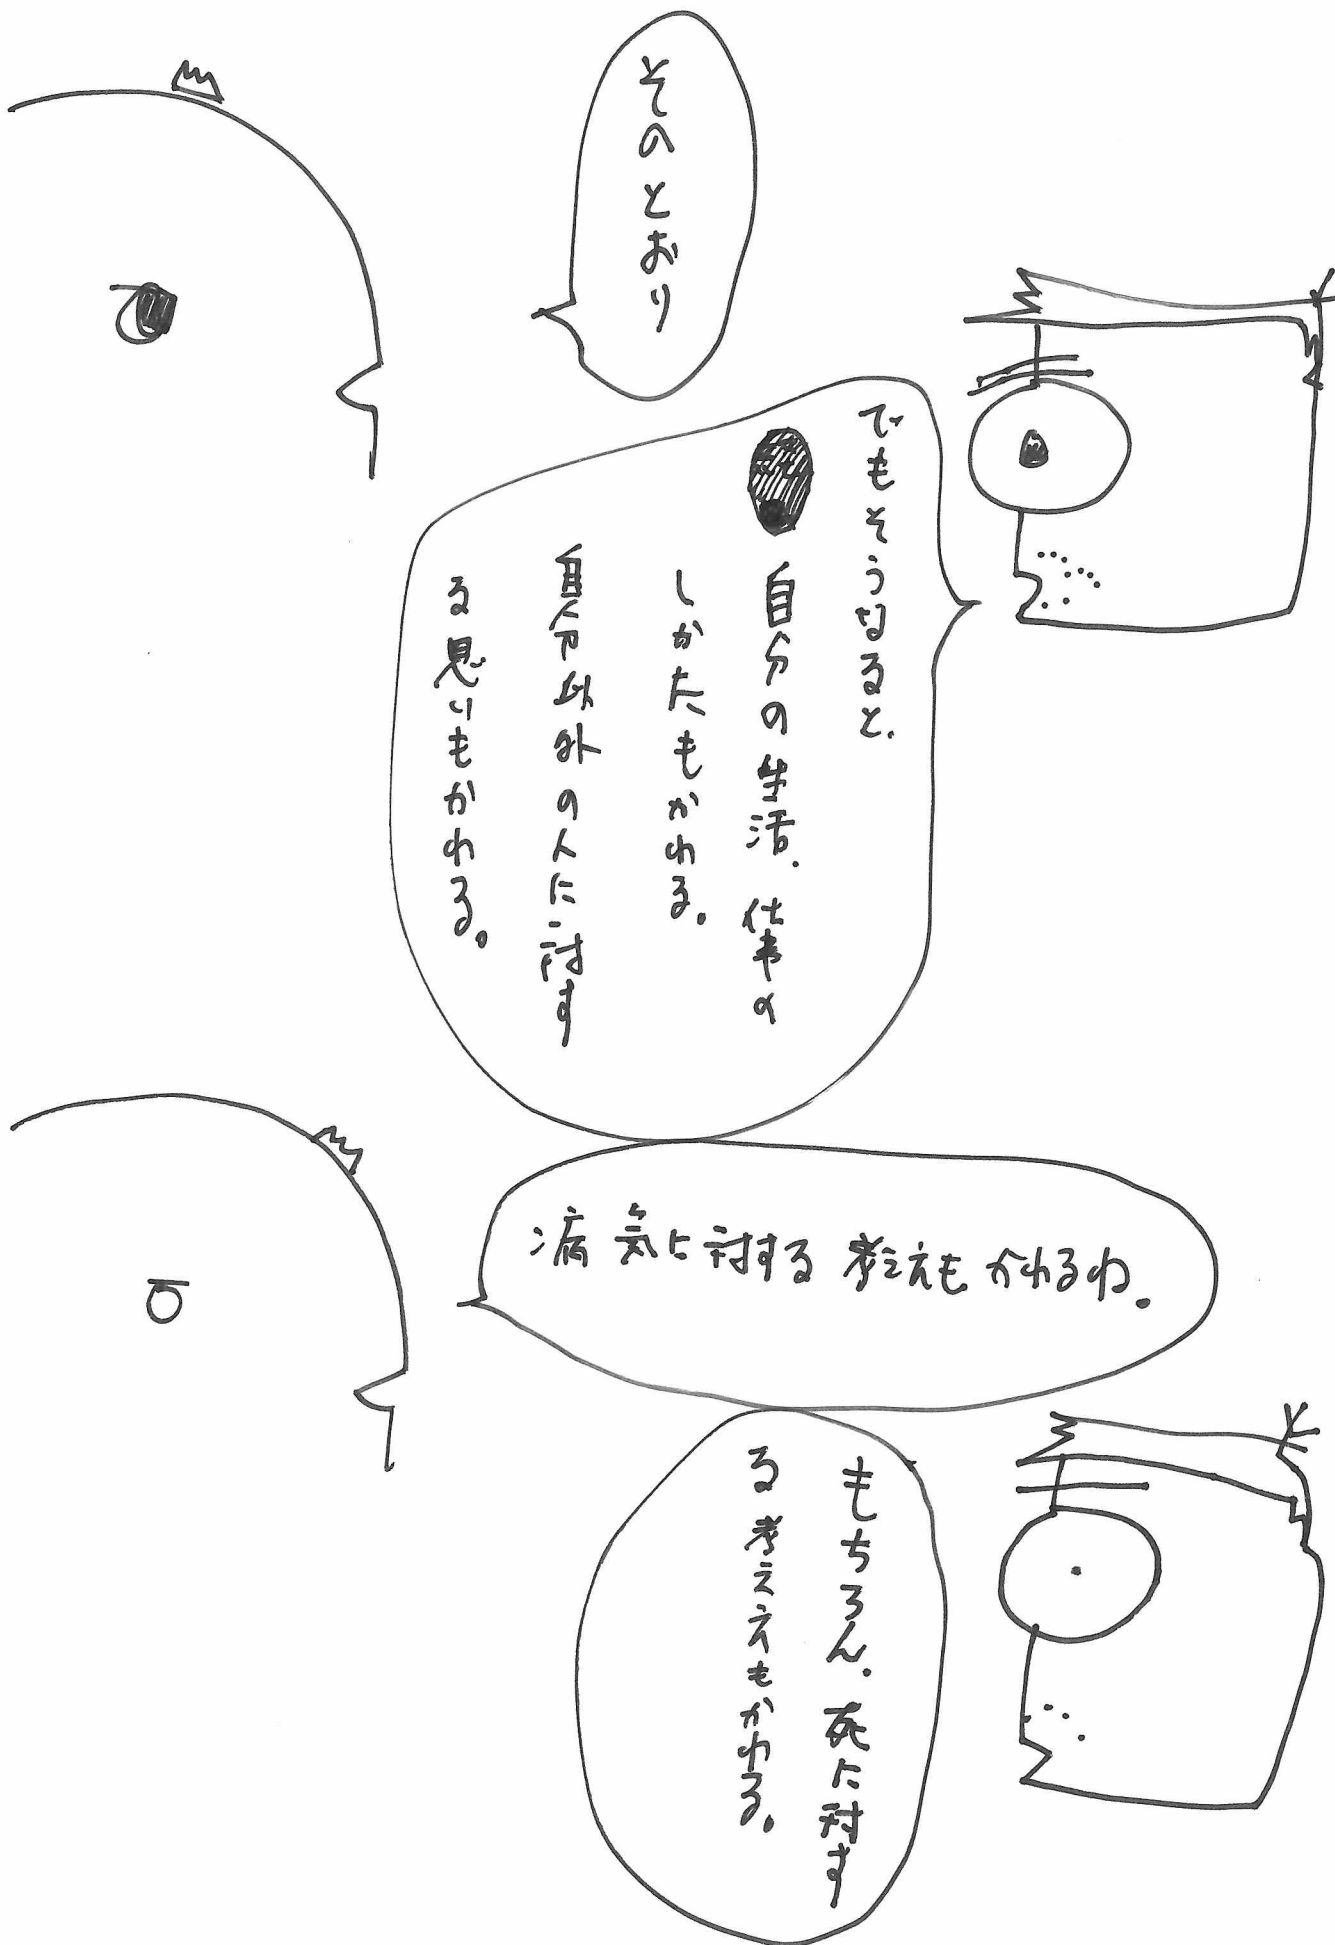 そのとおり
でもそうなると、
自分の生活、仕事の
しかたもかわる。
自分以外の人に対す
る思いもかわる。
病気に対する考えもかわるわ。
もちろん、死に対す
る考ええもかわる。